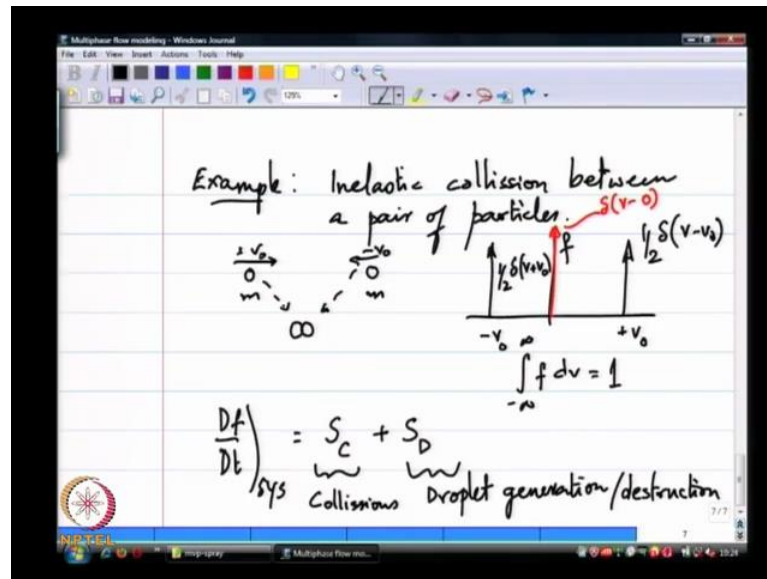 Multiphase flow modeling - Windows Journal
File Edit View Insert Actions Tools Help
129%
Example: Inelastic collision between
a pair of particles.
δ(v-0)
+v₀ -v₀
m m
f
½δ(v+v₀) ½δ(v-v₀)
-v₀ +v₀
∫_{-∞}^{∞} f dv = 1
Df/Dt)sys = S_C + S_D
Collissions Droplet generation/destruction
7/7
7
NPTEL
mvp-spray Multiphase flow mo...